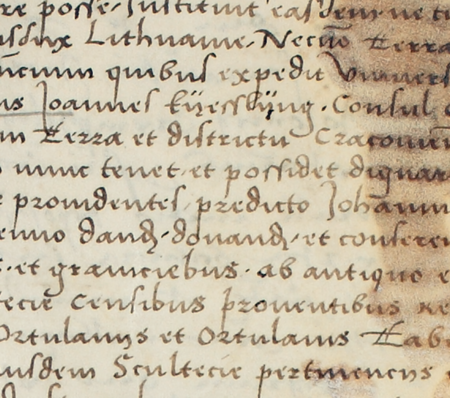 re posse. Instituit easdem ve
dux Lithuanie. Necno Terra
quibus expedit Univers
us Joannes kÿessLÿng. Consul
m Terra et districtu Cracovien
nunc tenet. et possidet
e providentes. predicto Johann
dand. donand. et confere
s. et graniciebus. ab antiquo e
tecie Censibus proventibus Re
Ortulanys et Ortulanis Tabe
usdem Scultecie pertinencys